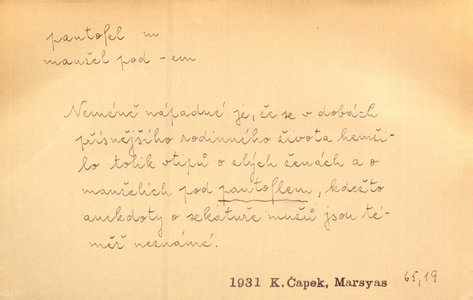 pantofel m
manžel pod -em
Neméně nápadné je, že se v dobách
přísnějšího rodinného života hemži-
lo tolik vtipů o zlých ženách a o
manželích pod pantoflem, kdežto
anekdoty o sekatuře mužů jsou té-
měř neznámé.
1931 K.Čapek, Marsyas 65,19